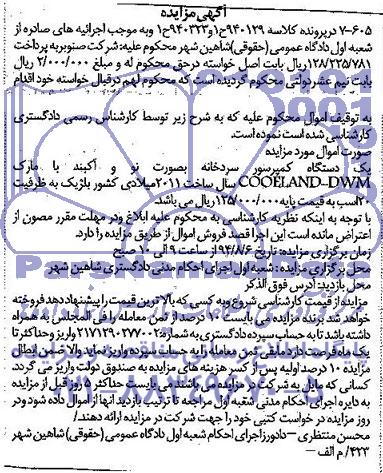 آگهی مزایده
۷-۶۰۵ در پرونده کلاسه ۹۴۰۱۲۹ح۱و۹۴۰۳۲۳ح۱ وبه موجب اجرائیه های صادره از
شعبه اول دادگاه عمومی (حقوقی)شاهین شهر محکوم علیه: شرکت صنوبر به پرداخت
۱۲۸/۲۲۵/۷۸۱ریال بابت اصل خواسته درحق محکوم له و مبلغ ۲/۰۰۰/۰۰۰ ریال
بابت نیم عشر دولتی محکوم گردیده است که محکوم لهم درقبال خواسته خود اقدام
به توقیف اموال محکوم علیه که به شرح زیر توسط کارشناس رسمی دادگستری
کارشناسی شده است نموده است.
صورت اموال مورد مزایده
یک دستگاه کمپرسور سردخانه بصورت نو و آکبند با مارک
COOELAND-DWM سال ساخت ۲۰۱۱میلادی کشور بلژیک به ظرفیت
۲۰اسب به قیمت پایه ۱۲۵/۰۰۰/۰۰۰ریال می باشد.
با توجه به اینکه نظریه کارشناسی به محکوم علیه ابلاغ ودر مهلت مقرر مصون از
اعتراض مانده است این اجرا قصد فروش اموال از طریق مزایده را دارد.
زمان برگزاری مزایده: تاریخ ۹۴/۸/۶ از ساعت ۹ الی ۱۰ صبح
محل برگزاری مزایده : شعبه اول اجرای احکام مدنی دادگستری شاهین شهر
محل بازدید: آدرس فوق الذکر
مزایده از قیمت کارشناسی شروع وبه کسی که بالاترین قیمت را پیشنهاد دهد فروخته
خواهد شد برنده مزایده می بایست ۱۰ درصد از ثمن معامله را فی المجلس به همراه
داشته باشد تا به حساب سپرده دادگستری به شماره ۲۱۷۱۲۹۰۲۷۷۰۰۲ واریز وحداکثر تا
یک ماه فرصت دارد مابقی ثمن معامله را به حساب سپرده واریز نماید والا ضمن ابطال
مزایده ۱۰ درصد اولیه پس از کسر هزینه های مزایده به صندوق دولت واریز می گردد.
کسانی که مایل به شرکت در مزایده می باشند می بایست حداکثر ۵ روز قبل از مزایده
به دایره اجرای احکام مدنی شعبه اول مراجعه تا ترتیب بازدید آنها از اموال داده شود ودر
روز مزایده درخواست کتبی خود را جهت شرکت در مزایده ارائه دهند/
محسن منتظری – دادورز اجرای احکام شعبه اول دادگاه عمومی (حقوقی) شاهین شهر
۴۲۳/ م الف –